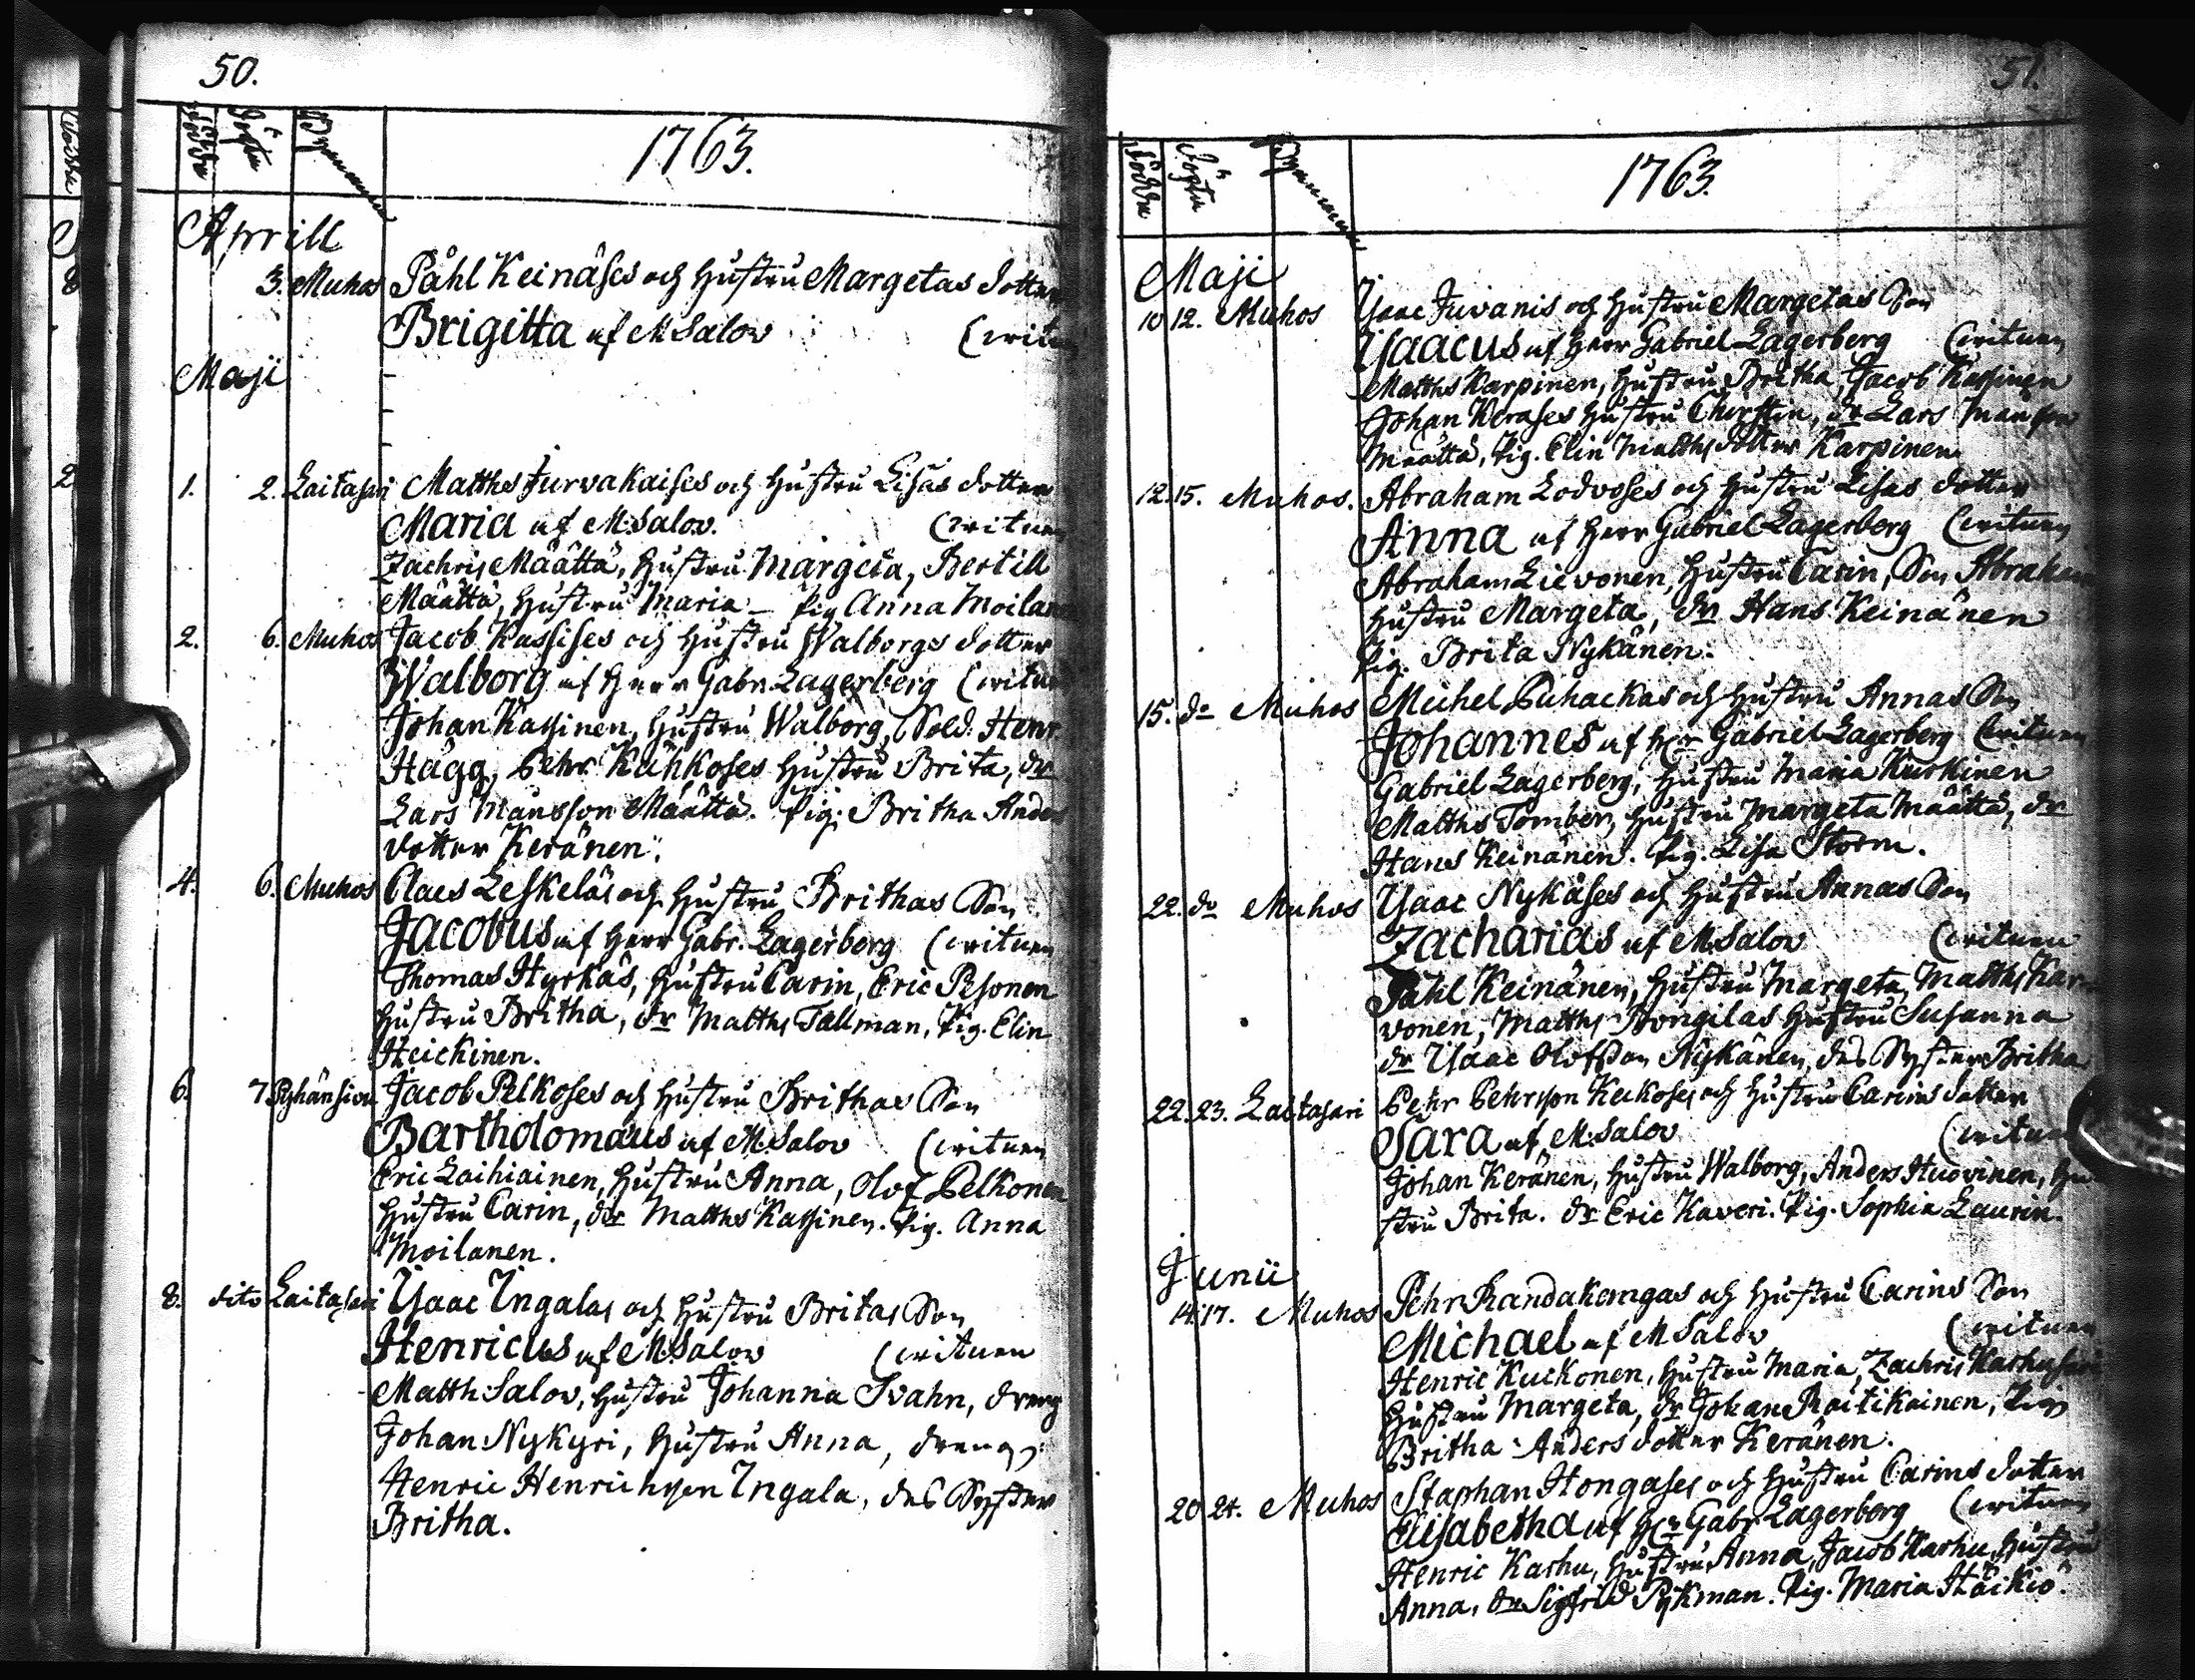 50.
Födde
Döpte
Byarnanne
1763.
Aprill
3. Muhos Påhl Keinäses och Hustru Margetas dotter
Brigitta af M Salov
Maji
1. 2. Laitasari Matths Turvakaises och Hustru Lisas dotter
Maria af M: Salov. (Vittnen
Zachris Määttä, Hustru Margeta, Bertill
Määttä, Hustru Maria - Pig Anna Moilanen
2. 6. Muhos Jacob Kassises och Hustru Walborgs dotter
Walborg af Herr Gabr. Lagerberg (Vittnen
Johan Kassinen, Hustru Walborg, Sold. Henr.
Hägg, Pehr Kähkoses Hustru Brita, dr
Lars Månsson Määttä. Pig: Britha Anders
dotter Keränen.
4. 6. Muhos Claes Leskeläs och Hustru Brithas Son
Jacobus af Herr Gabr. Lagerberg (Vittnen
Thomas Hyrkäs, Hustru Carin, Eric Pesonen
Hustru Britha, dr Matths Tallman, Pig. Elin
Heickinen.
6. 7. Pyhänsivu Jacob Pelkoses och Hustru Brithas Son
Bartholomäus af M. Salov (Vittnen
Eric Laihiainen, Hustru Anna, Olof Pelkonen
Hustru Carin, dr Matths Kassinen. Pig. Anna
Moilanen.
8. dito Laitasari Isaac Ingalas och Hustru Britas Son
Henricus af M. Salov (Vittnen
Matth. Salov, Hustru Johanna Svahn, dreng
Johan Nykyri, Hustru Anna, dreng
Henric Henrichsson Ingala, des Syster
Britha.
51.
Födde
Döpte
Byarnanne
1763.
Maji
10 12. Muhos Isaac Juvanis och Hustru Margetas Son
Isaacus af Herr Gabriel Lagerberg (Vittnen
Matths Karpinen, Hustru Britha, Jacob Kassinen
Johan Kerases Hustru Chirstin, dr Lars Månsson
Määttä, Pig. Elin Matths dotter Karpinen.
12. 15. Muhos. Abraham Lodvoses och Hustru Lisas dotter
Anna af Herr Gabriel Lagerberg (Vittnen
Abraham Lievonen, Hustru Carin, Son Abraham
Hustru Margeta, dr Hans Keinänen
Pig. Brita Nykänen.
15. do Muhos Michel Puhackas och Hustru Annas Son
Johannes af Hr Gabriel Lagerberg (Vittnen
Gabriel Lagerberg, Hustru Maria Kurkinen
Matths Tomber, Hustru Margeta Määttä, dr
Hans Keinänen. Pig. Lisa Storm.
22. do Muhos Isaac Nykäses och Hustru Annas Son
Zacharias af M. Salov (Vittnen
Påhl Keinänen, Hustru Margeta, Matths Kar-
vonen, Matths Pongilas Hustru Susanna
dr Isaac Olofsson Nykänen, des Syster Britha
22. 23. Laitasari Pehr Pehrsson Keckoses och Hustru Carins dotter
Sara af M: Salov (Vittnen
Johan Keränen, Hustru Walborg, Anders Huovinen, Hu
stru Brita. dr Eric Kaveri. Pig. Sophia Laurin.
Junii
14. 17. Muhos Pehr Randakemgas och Hustru Carins Son
Michael af M Salov (Vittnen
Henric Kuckonen, Hustru Maria, Zachris Karhusari
Hustru Margeta, dr Johan Räitikainen, Pig
Britha Anders dotter Keränen.
20 24. Muhos Staphan Hongases och Hustru Carins dotter
Elisabetha af Hr Gabr Lagerberg (Vittnen
Henric Karhu, Hustru Anna, Jacob Karhu, Hustru
Anna, dr Sigfrid Pykman. Pig. Maria Häikiö.